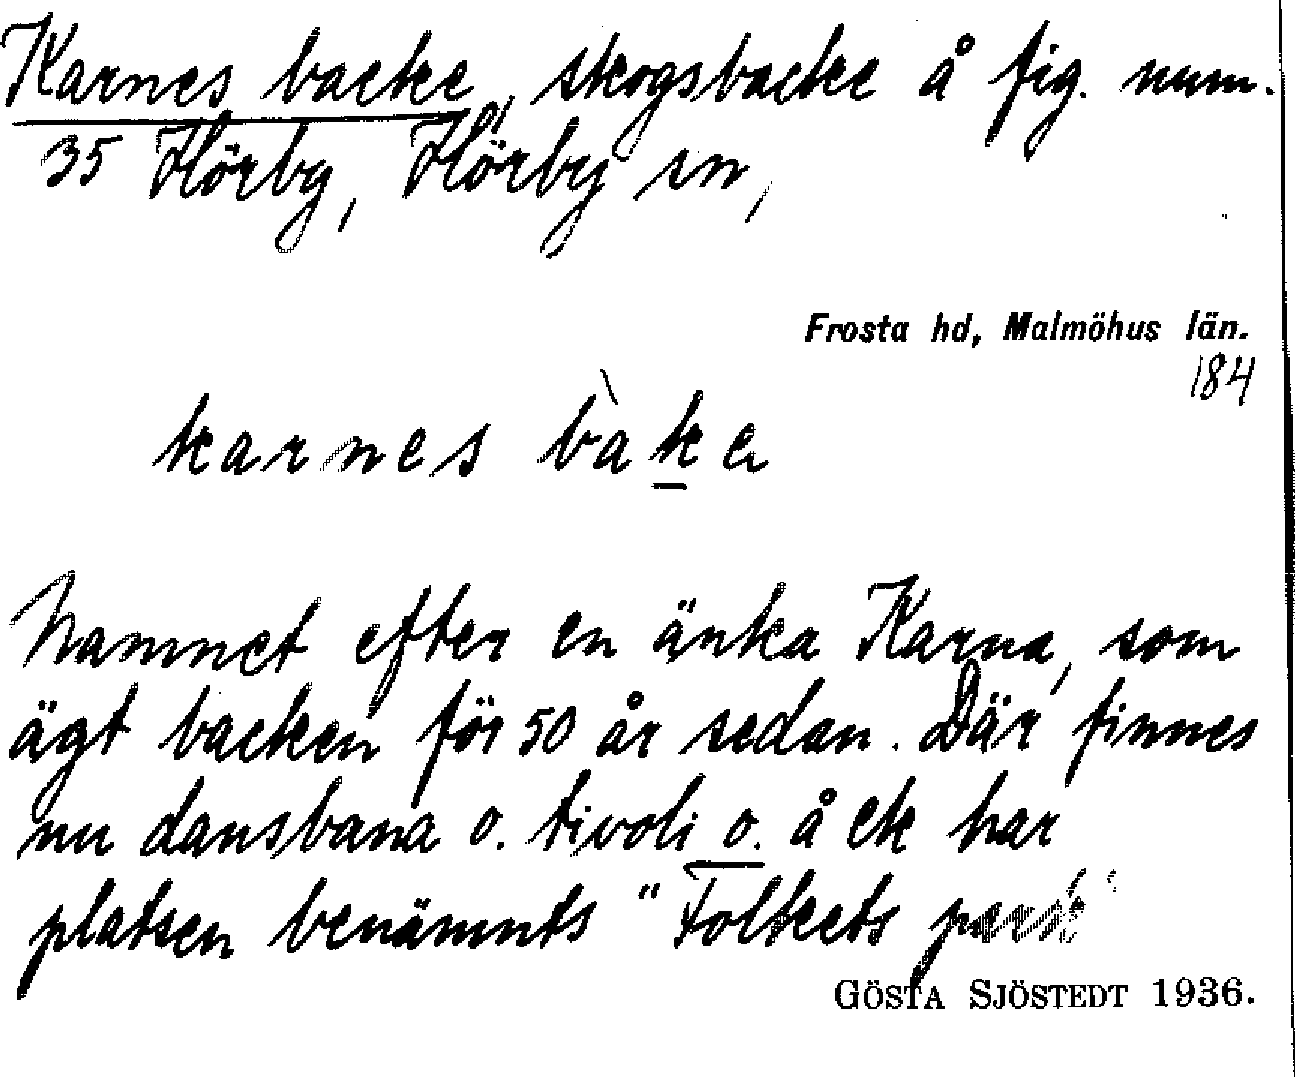 Karnes backe, skogsbacke å fig. num.
35 Hörby, Hörby sn,
Frosta hd, Malmöhus län.
184
karnes bàke
Namnet efter en änka Karna, som
ägt backen för 50 år sedan. Där finnes
nu dansbana o. tivoli o. å ek har
platsen benämnts "Folkets park"
GÖSTA SJÖSTEDT 1936.